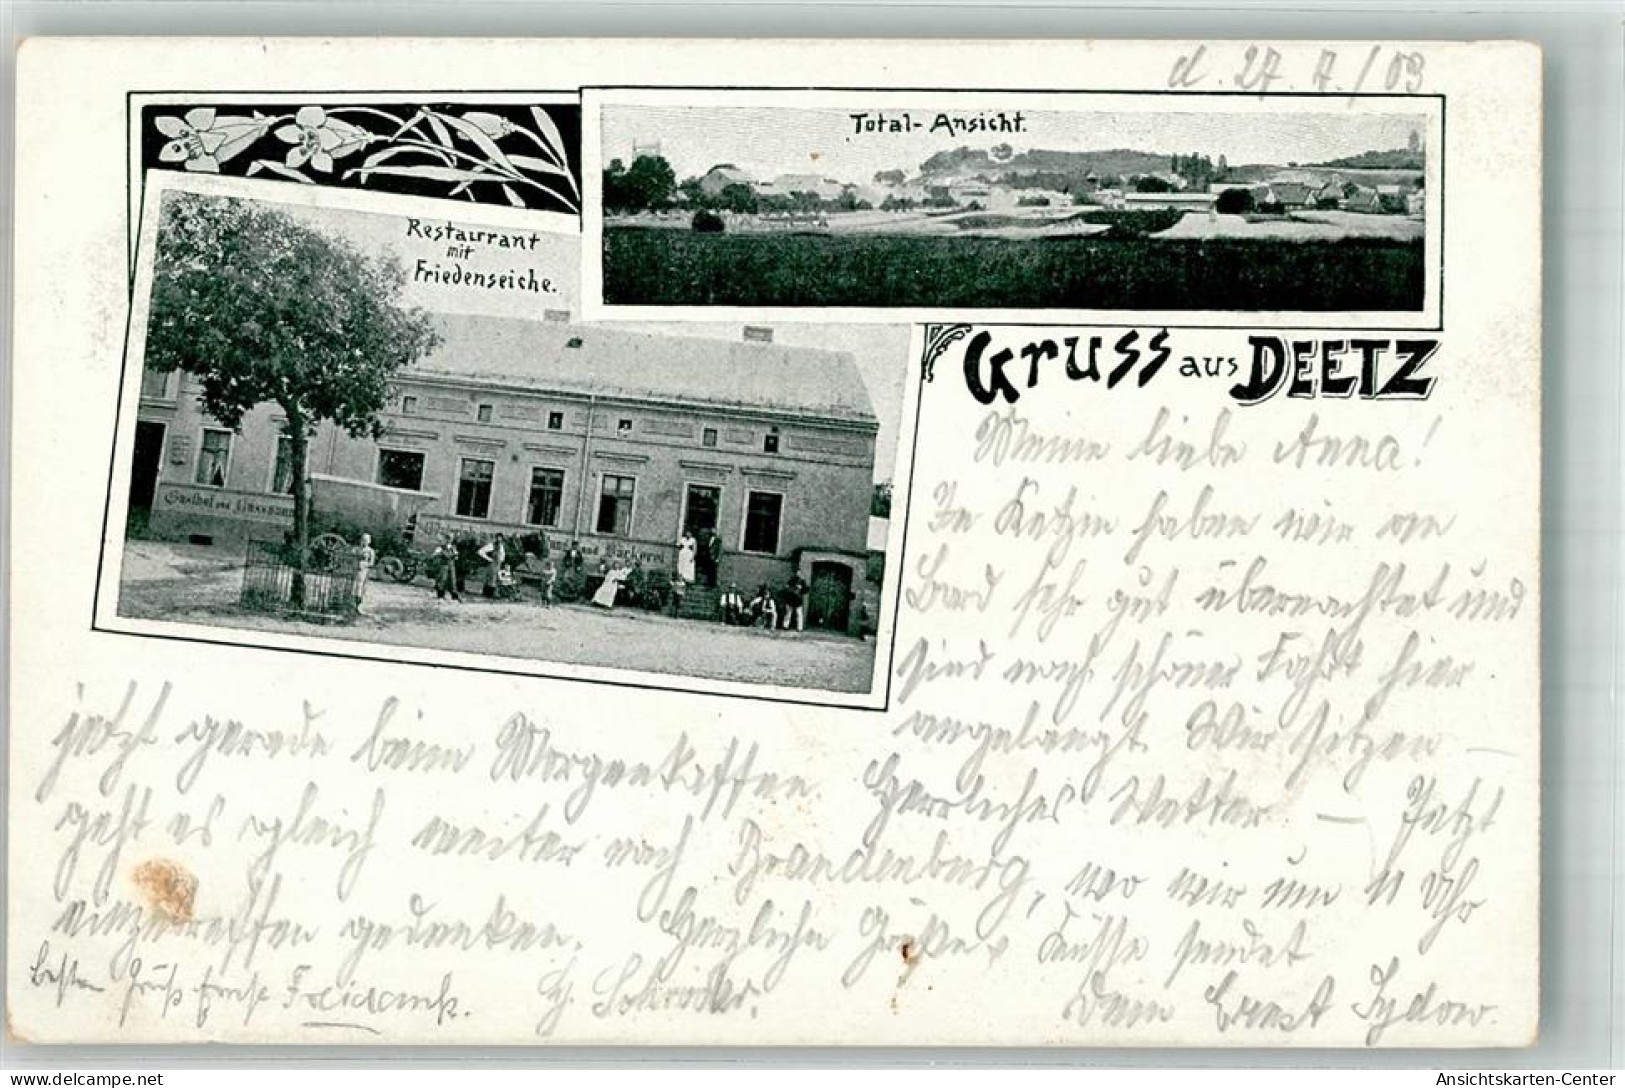 d. 27. 7./03
Total-Ansicht.
Restaurant
mit
Friedenseiche.
Gasthof und
und Bäckerei
Gruss aus DEETZ
Meine liebe Anna!
In Ketzin haben wir an
Bord sehr gut übernachtet und
sind nach schöner Fahrt hier
angelangt. Wir sitzen
jetzt gerade beim Morgenkaffee.
Herrliches Wetter. — Jetzt
geht es gleich weiter nach Brandenburg, wo wir um 11 Uhr
einzutreffen gedenken. Herzliche Grüße u Küsse sendet
Dein Ernst Sydow.
Besten Gruß
Ansichtskarten-Center
Ansichtskarten-Center